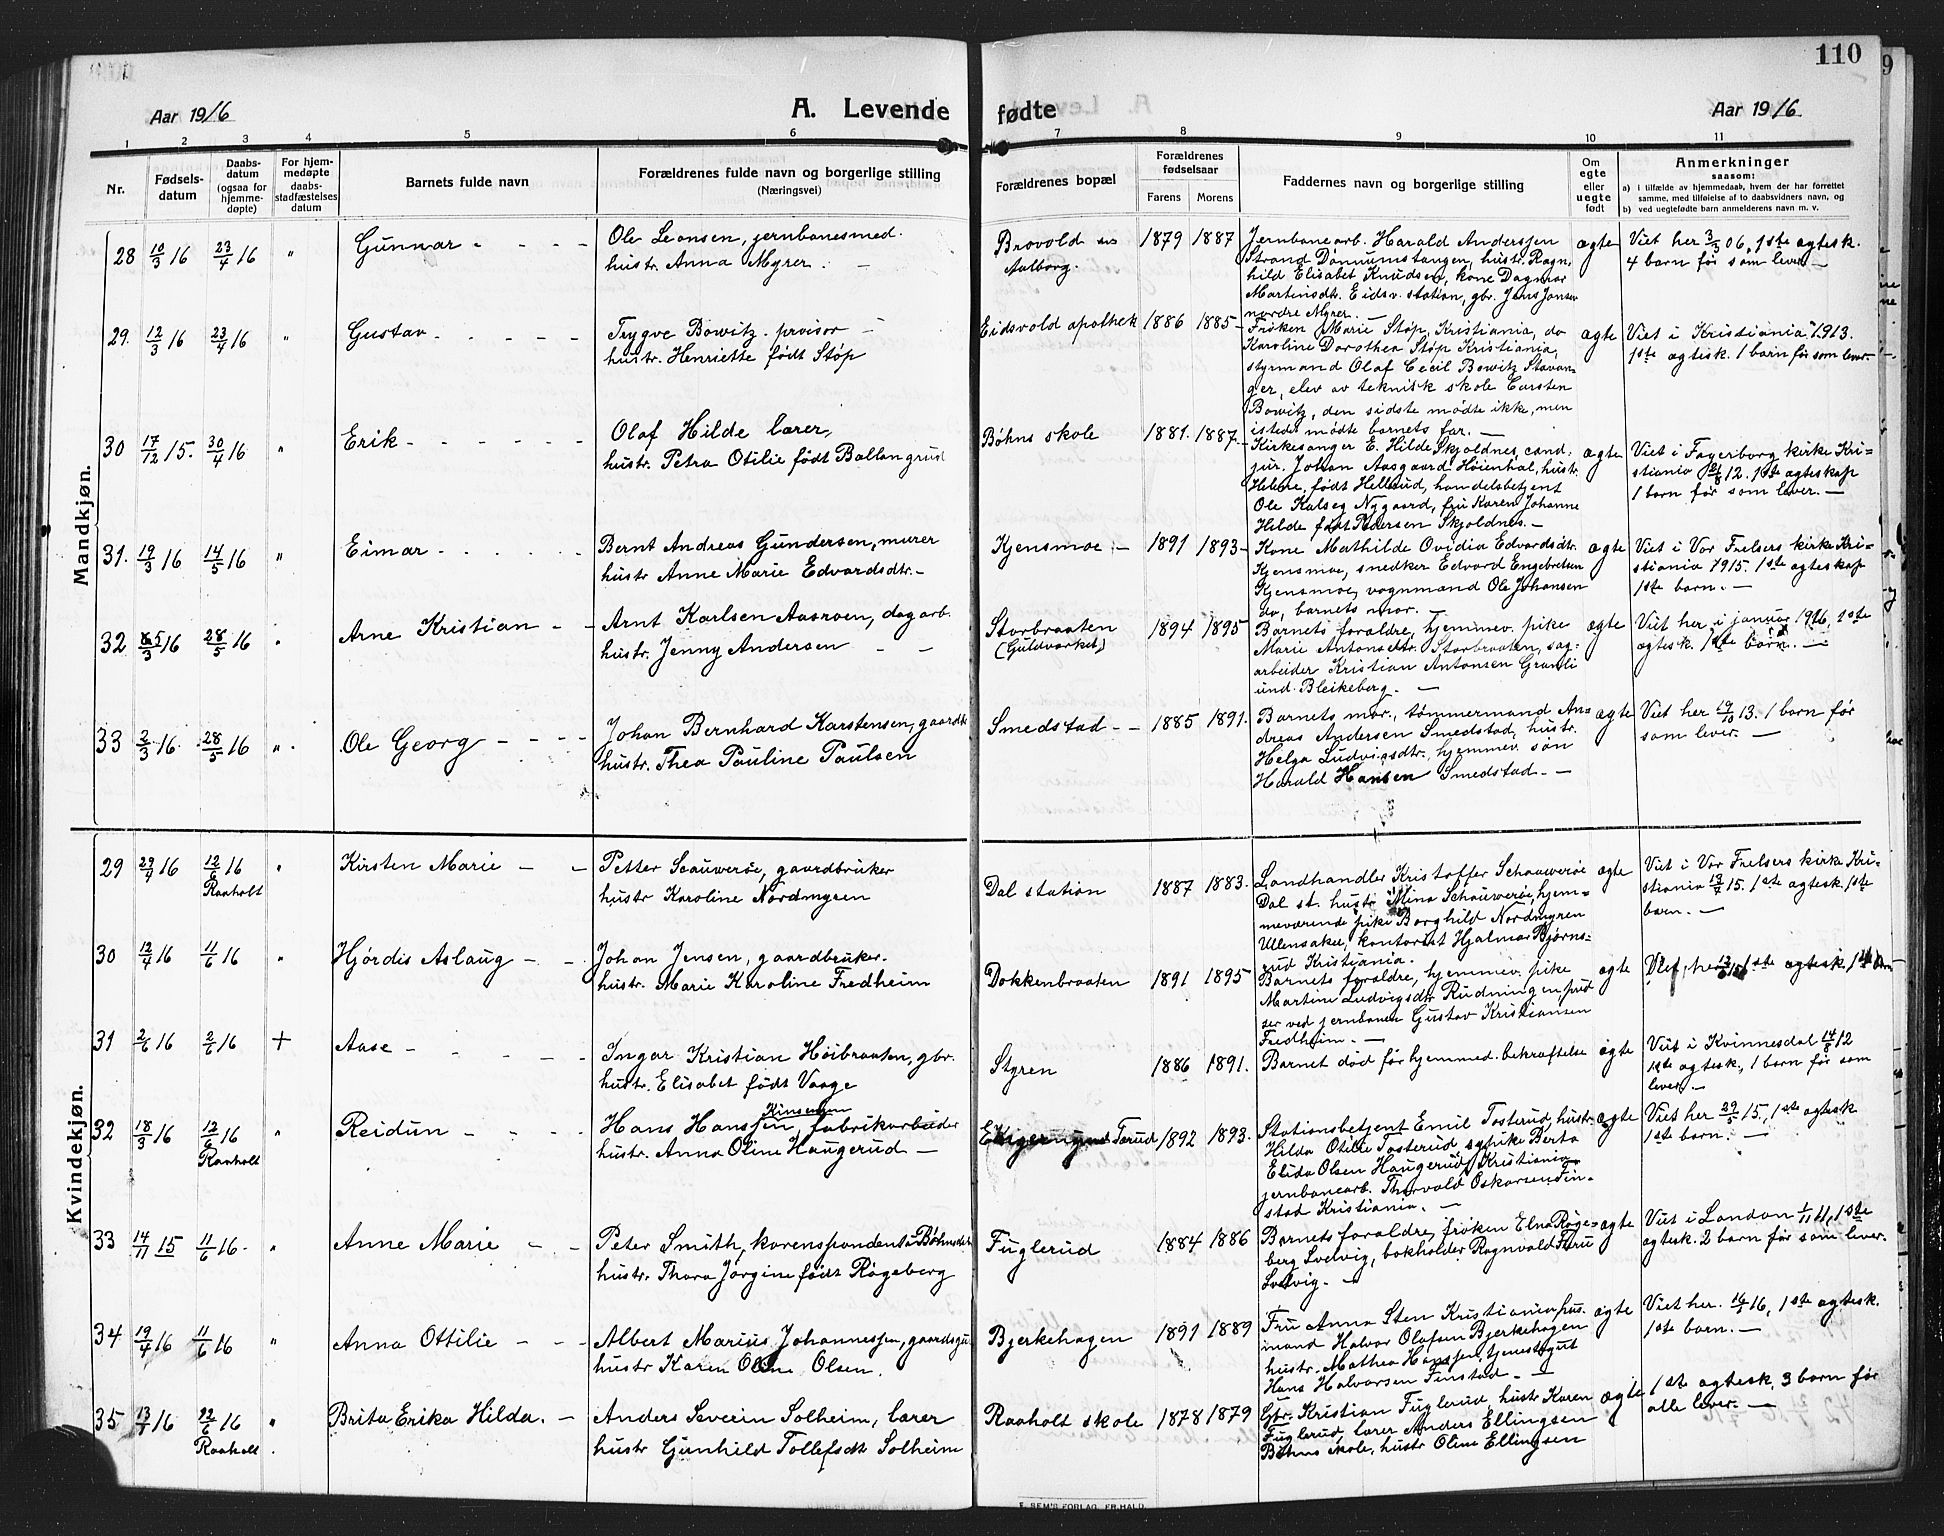 110
Aar 1916
A. Levende fødte
Aar 1916
1 2 3 4 5 6 7 8 9 10 11
Nr.
Fødsels-
datum
Daabs-
datum
(ogsaa for
hjemme-
døpte)
For hjem-
medøpte
daabs-
stadfæstelses
datum
Barnets fulde navn
Forældrenes fulde navn og borgerlige stilling
(Næringsvei)
Forældrenes bopæl
Forældrenes
fødselsaar
Farens Morens
Faddernes navn og borgerlige stilling
Om
egte
eller
uegte
født
Anmerkninger
saasom:
a) i tilfælde av hjemmedaab, hvem der har forrettet
samme, med tilføielse af to daabsvidners navn, og
b) ved uegtefødte barn anmelderens navn m. v.
Mandkjøn.
28 10/3 16 23/4 16 " Gunnar
Ole Leonsen, jernbanesmed.
hustr. Anna Myrer.
Brovold
Aalborg.
1879 1887
Jernbanearb. Harald Anderssen
Strand Dønnumstangen, hustr. Ragn-
hild Elisabet Knudsen, kone Dagmar
Martinsdtr. Eidsv. station, gbr. Jens Jensen
nordre Myrer.
ægte
Viet her 3/3 06, 1ste ægtesk.
4 barn før som lever.
29. 12/3 16 23/4 16 " Gustav
Trygve Bowitz, provisor
hustr. Henriette født Støp
Eidsvold apothek 1886 1885
Frøken Marie Støp, Kristiania, do
Karoline Dorothea Støp Kristiania,
styrmand Olaf Cecil Bowitz Stavan-
ger, elev av teknisk skole Carsten
Bowitz, den sidste mødte ikke, men
istedet mødte barnets far.
ægte
Viet i Kristiania 1913.
1ste ægtesk. 1 barn før som lever
30 17/12 15. 30/4 16 " Erik
Olaf Hilde lærer,
hustr. Petra Otilie født Ballangrud
Bøhns skole 1881. 1887.
Kirkesanger E. Hilde Skjoldnes, cand.
jur. Johan Aasgaard Høienhal, hustr.
Helene, født Hellerud, handelsbetjent
Ole Kalseg Nygaard, fru Karen Johanne
Hilde født Pedersen Skjoldnes.
ægte
Viet i Fagerborg kirke Kri-
stiania 21/8 12. 1ste ægteskap
1 barn før som lever.
31. 19/3 16 14/5 16 " Eimar
Bernt Andreas Gundersen, murer
hustr Anne Marie Edvardsdtr.
Kjensmoe 1891 1893
Kone Mathilde Ovidia Edvardsdtr.
Kjensmoe, snedker Edvard Engebretsen
Kjensmoe, vognmand Ole Johansen
do, barnets mor.
ægte
Viet i Vor Frelsers kirke Kri-
stiania 1915. 1ste ægteskap
1ste barn.
32 5/3 16 28/5 16 " Arne Kristian
Arnt Karlsen Aasroen, dagarb.
hustr. Jenny Andersen
Storbraaten
(Guldværket)
1894 1895
Barnets forældre, hjemmev. pike
Marie Antonsdtr. Storbraaten, sag-
arbeider Kristian Antonsen Granli
und. Bleikeberg.
ægte
Viet her i januar 1916, 1ste
ægtesk. 1ste barn.
33 2/3 16 28/5 16 " Ole Georg
Johan Bernhard Karstensen, gaardbr
hustr. Thea Pauline Paulsen
Smedstad 1885 1891.
Barnets mor, tømmermand An-
dreas Andersen Smedstad, hustr.
Helga Ludvigsdtr., hjemmev. søn
Harald Hansen Smedstad.
ægte
Viet her 19/10 13. 1 barn før
som lever.
Kvindekjøn.
29 29/4 16 12/6 16
Raaholt
" Kirsten Marie
Petter Scauverøe, gaardbruker
hustr Karoline Nordmyren
Dal station 1887 1883.
Landhandler Kristoffer Schauwerøe
Dal st. hustr. Mina Schauwerøe, hjem-
meværende pike Borghild Nordmyren
Ullensaker, kontorist Hjalmar Bjørns-
rud Kristiania.
ægte
Viet i Vor Frelsers kirke Kri-
stiania 13/7 15. 1ste ægtesk. 1ste
barn.
30 12/4 16 11/6 16 " Hjørdis Aslaug
Johan Jensen, gaardbruker.
hustr. Marie Karoline Fredheim
Dokkenbraaten 1891 1895
Barnets forældre, hjemmev. pike
Martine Ludvigsdtr Rudningen, pud
ser ved jernbanen Gustav Kristiansen
Fredheim.
ægte
Viet her 1ste ægtesk. 1ste barn
31 2/6 16 2/6 16 + Aase
Ingar Kristian Høibraaten, gbr.
hustr. Elisabet født Vaage
Styren 1886 1891.
Barnet død før hjemmed. bekræftelse
ægte
Viet i Kvinnesdal 14/8 12
1ste ægtesk., 1 barn før som
lever.
32 18/3 16 12/6 16
Raaholt
" Reidun
Hans Hanssen, fabrikarbeider
hustr. Anna Otine Haugerud
Tærud 1892 1893.
Stationsbetjent Emil Tosterud, hustr.
Hilda Otilie Tosterud, sypike Berta
Elida Olsen Haugerud, Kristiania
jernbanearb. Thorvald Oskarsen Fin-
stad Kristiania.
ægte
Viet her 29/5 15, 1ste ægtesk
1ste barn.
33 14/11 15 11/6 16. " Anne Marie
Peter Smith, korrespondent
hustr. Thora Jørgine født Røgeberg
Fuglerud 1884 1886
Barnets forældre, frøken Elna Røge-
berg Svelvig, bokholder Ragnvald
Svelvig.
ægte
Viet i London 1/11 11, 1ste
ægtesk. 2 barn før som lever.
34 19/4 16 11/6 16 " Anna Ottilie
Albert Marius Johannessen, gaardsgut
hustr Karen Oline Olsen.
Bjerkehagen 1891 1889
Fru Anna Sten Kristiania, hus-
mand Halvor Olafsen Bjerkehagen
hustr. Mathea Hanssen, tjenestgut
Hans Halvorsen Finstad.
ægte
Viet her. 16/1 16, 1ste ægtesk.
1ste barn.
35 13/4 16 22/6 16
Raaholt
" Brita Erika Hilda.
Anders Severin Solheim, lærer
hustr Gunhild Tollefsdt Solheim
Raaholt skole 1878 1879
Gbr. Kristian Fuglerud, hustr Karen
Fuglerud, lærer Anders Ellingsen
Bøhns skole, hustr Oline Ellingsen
ægte
1ste ægtesk. 3 barn før
alle lever.
E. SEM'S FORLAG, FR.HALD.